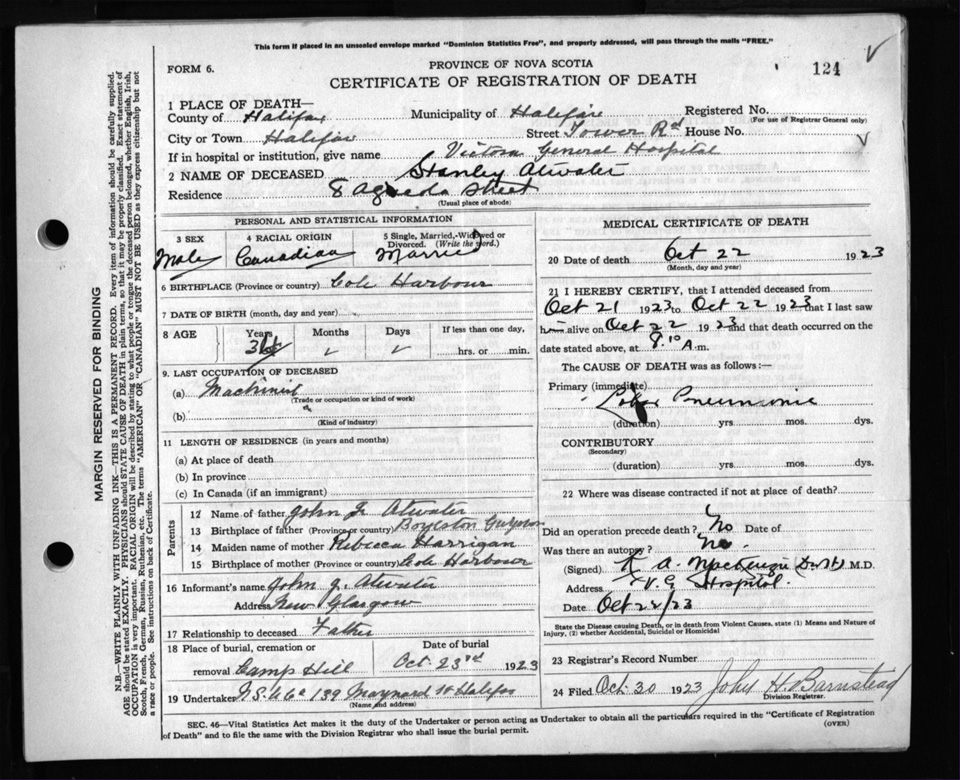 This form if placed in an unsealed envelope marked "Dominion Statistics Free", and properly addressed, will pass through the mails "FREE."
FORM 6.
PROVINCE OF NOVA SCOTIA
124
CERTIFICATE OF REGISTRATION OF DEATH
1 PLACE OF DEATH—
County of Halifax Municipality of Halifax Registered No.
(For use of Registrar General only)
City or Town Halifax Street Tower Rd House No.
If in hospital or institution, give name Victoria General Hospital
2 NAME OF DECEASED Stanley Atwater
Residence 8 Street
(Usual place of abode)
PERSONAL AND STATISTICAL INFORMATION
3 SEX 4 RACIAL ORIGIN 5 Single, Married, Widowed or Divorced. (Write the word.)
Male Canadian Married
6 BIRTHPLACE (Province or country) Cole Harbour
7 DATE OF BIRTH (month, day and year)
8 AGE Years Months Days If less than one day,
hrs. or min.
9. LAST OCCUPATION OF DECEASED
(a) Machinist
(Trade or occupation or kind of work)
(b)
(Kind of industry)
11 LENGTH OF RESIDENCE (in years and months)
(a) At place of death
(b) In province
(c) In Canada (if an immigrant)
Parents
12 Name of father John J Atwater
13 Birthplace of father (Province or country) Boylston
14 Maiden name of mother Rebecca Harrigan
15 Birthplace of mother (Province or country) Cole Harbour
16 Informant's name John J. Atwater
Address New Glasgow
17 Relationship to deceased Father
18 Place of burial, cremation or removal Camp Hill
Date of burial
Oct. 23rd 1923
19 Undertaker 139 Maynard St Halifax
(Name and address)
MEDICAL CERTIFICATE OF DEATH
20 Date of death Oct 22 1923
(Month, day and year)
21 I HEREBY CERTIFY, that I attended deceased from
Oct 21 1923 to Oct 22 1923 that I last saw
him alive on Oct 22 1923 and that death occurred on the
date stated above, at 8.10 A.m.
The CAUSE OF DEATH was as follows:—
Primary (immediate)
Lobar Pneumonia
(duration) yrs. mos. dys.
CONTRIBUTORY
(Secondary)
(duration) yrs. mos. dys.
22 Where was disease contracted if not at place of death?
Did an operation precede death? No Date of
Was there an autopsy? No.
(Signed) A. MacKenzie M.D.
Address V. G. Hospital.
Date Oct 22/23
State the Disease causing Death, or in death from Violent Causes, state (1) Means and Nature of
Injury, (2) whether Accidental, Suicidal or Homicidal
23 Registrar's Record Number
24 Filed Oct. 30 1923 John H. Barnstead
Division Registrar.
SEC. 46—Vital Statistics Act makes it the duty of the Undertaker or person acting as Undertaker to obtain all the particulars required in the "Certificate of Registration
of Death" and to file the same with the Division Registrar who shall issue the burial permit.
(OVER)
MARGIN RESERVED FOR BINDING
N.B.—WRITE PLAINLY WITH UNFADING INK—THIS IS A PERMANENT RECORD. Every item of information should be carefully supplied.
AGE should be stated EXACTLY. PHYSICIANS should STATE CAUSE OF DEATH in plain terms, so that it may be properly classified. Exact statement of
OCCUPATION is very important. RACIAL ORIGIN will be described by stating to what people or tongue the deceased person belonged, whether English, Irish,
Scotch, French, German, Russian, Ruthenian, etc. The terms "AMERICAN" OR "CANADIAN" MUST NOT BE USED as they express citizenship but not
a race or people. See instructions on back of Certificate.